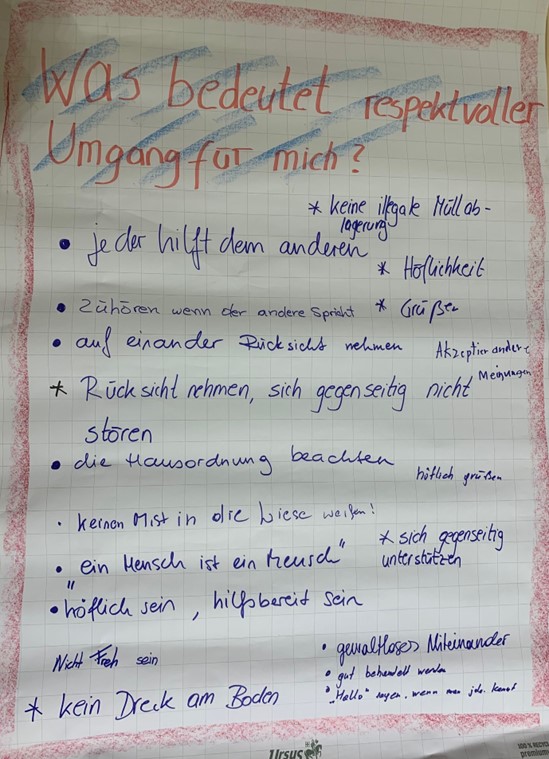 Was bedeutet respektvoller
Umgang für mich?
* keine illegale Müllab-
lagerung
• jeder hilft dem anderen
* Höflichkeit
• Zuhören wenn der andere Spricht
* Grüßen
• auf einander Rücksicht nehmen
Akzeptier andere
Meinungen
* Rücksicht nehmen, sich gegenseitig nicht
stören
• die Hausordnung beachten
höflich grüßen
• keinen Mist in die
* sich gegenseitig
unterstützen
• "ein Mensch ist ein Mensch"
• höflich sein, hilfsbereit sein
• gewaltloses Miteinander
Nicht Freh sein
• gut behandelt werden
• "Hallo" sagen, wenn man jdn. kennt
* kein Dreck am Boden
Ursus
100% RECYC
premium